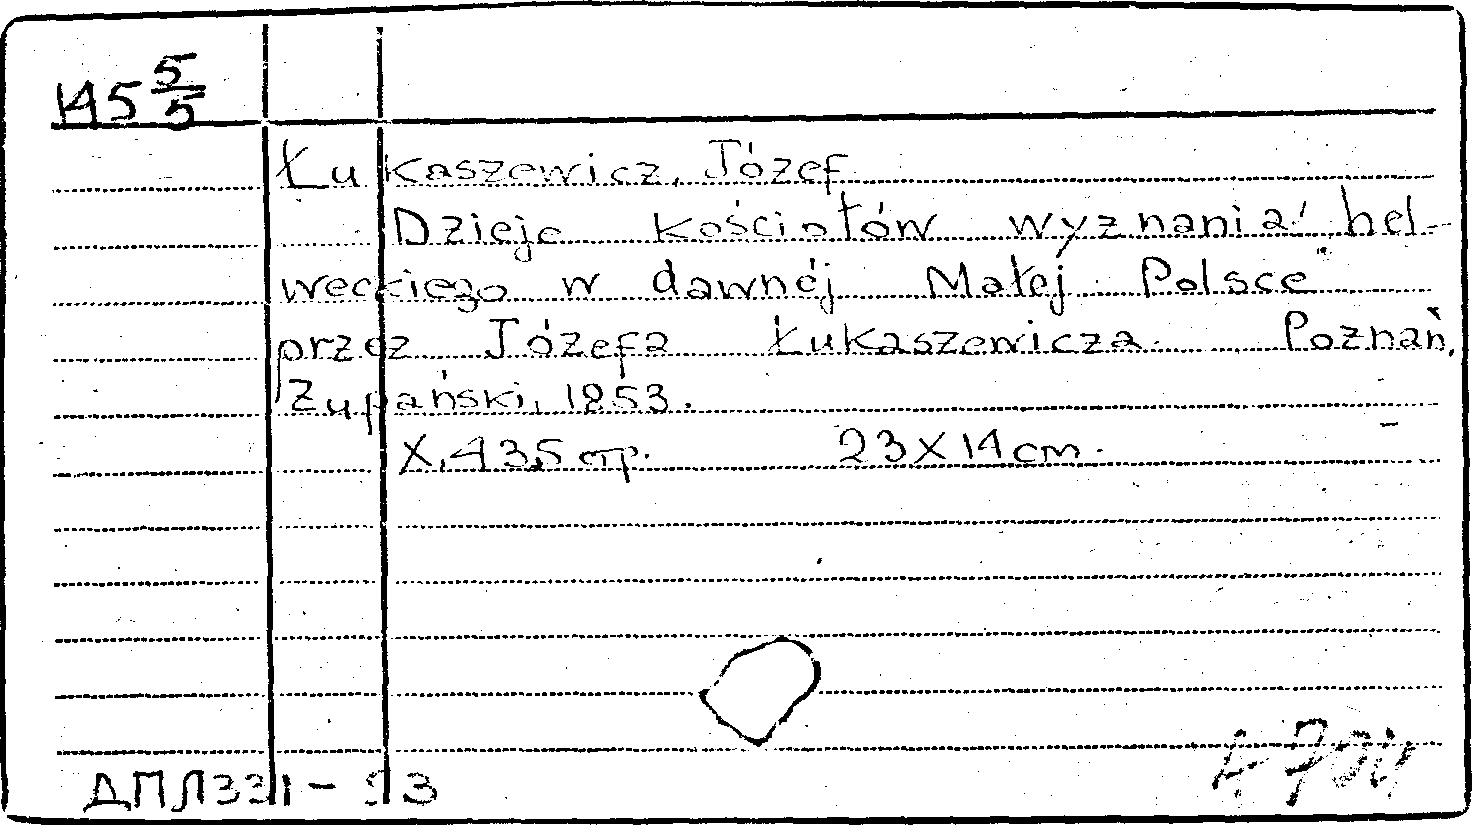 145 5/5
Łukaszewicz, Józef
Dzieje kościołów wyznania hel-
weckiego w dawnéj Małej Polsce
przez Józefa Łukaszewicza. Poznań,
Zupański, 1853.
X, 435 стр. 23X14 cm.
ДПЛ331-53